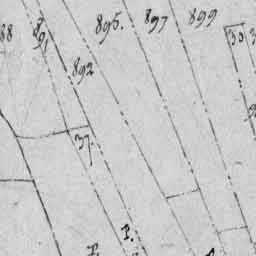 88
891
892
895.
897
899
30
37.
P.